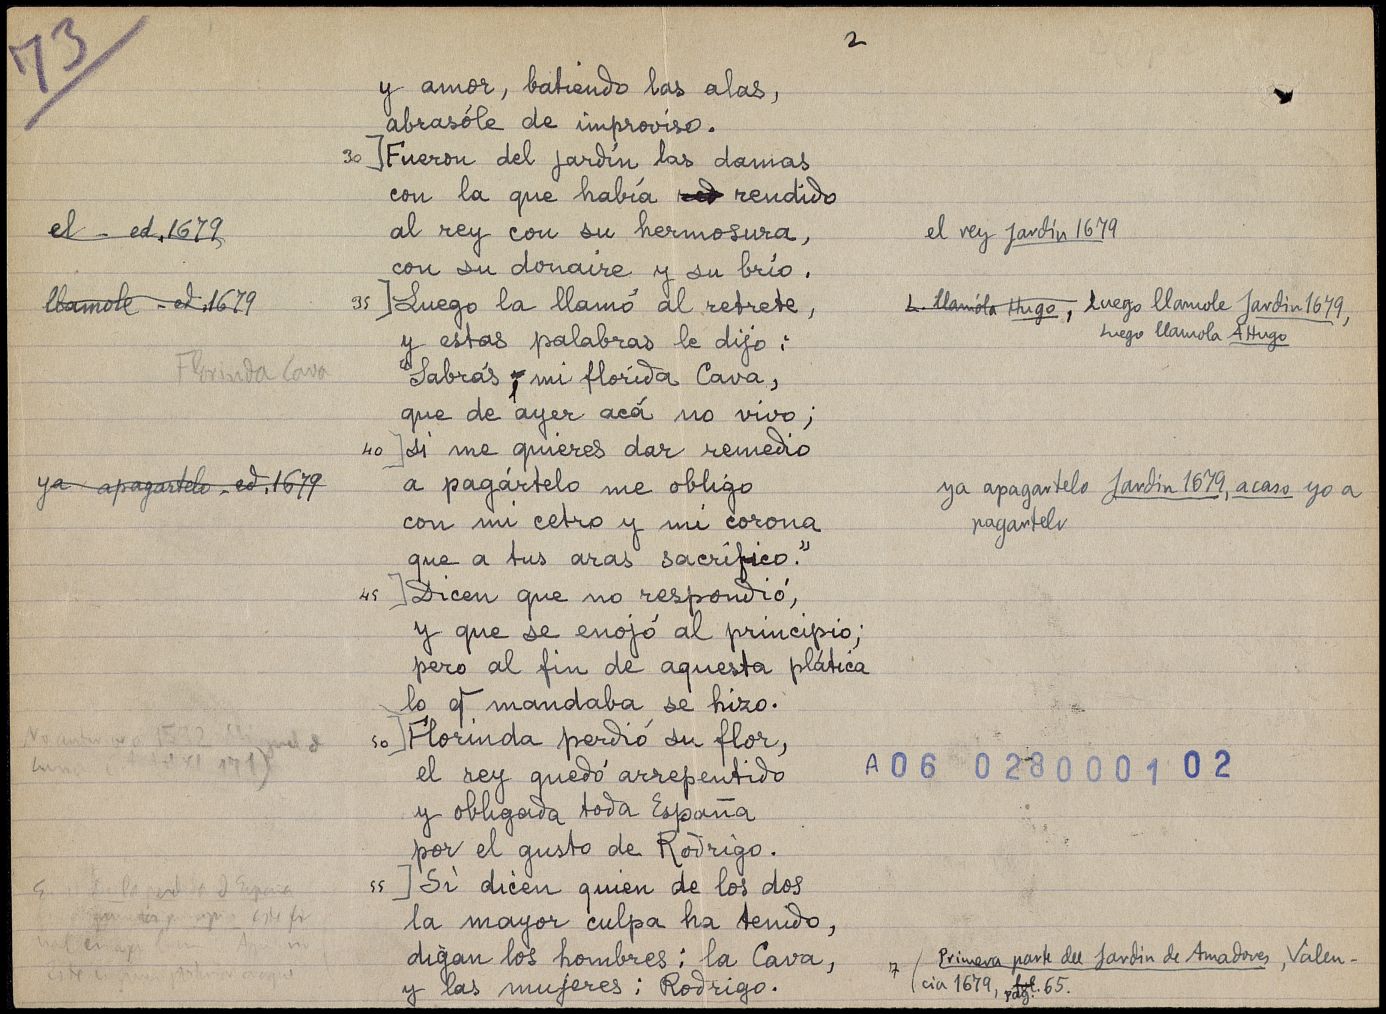 73
2
y amor, batiendo las alas,
abrasóle de improviso.
30 ] Fueron del jardín las damas
con la que había red rendido
el - ed. 1679
al rey con su hermosura,
el rey Jardín 1679
con su donaire y su brío.
llamole - ed. 1679
35 ] Luego la llamó al retrete,
L. llamóla Hugo, Luego llamole Jardin 1679,
Luego llamola AHugo
y estas palabras le dijo:
Florinda Cava
"Sabrás, mi florida Cava,
que de ayer acá no vivo;
40 ] si me quieres dar remedio
ya apagartelo - ed. 1679
a pagártelo me obligo
ya apagartelo Jardin 1679, acaso yo a
pagartelo
con mi cetro y mi corona
que a tus aras sacrifico."
45 ] Dicen que no respondió,
y que se enojó al principio;
pero al fin de aquesta plática
lo q̄ mandaba se hizo.
50 ] Florinda perdió su flor,
el rey quedó arrepentido
A06 0280001 02
y obligada toda España
por el gusto de Rodrigo.
55 ] Si dicen quien de los dos
la mayor culpa ha tenido,
digan los hombres: la Cava,
y las mujeres: Rodrigo.
7 ( Primera parte del Jardin de Amadores, Valen-
cia 1679, fol. pág. 65.